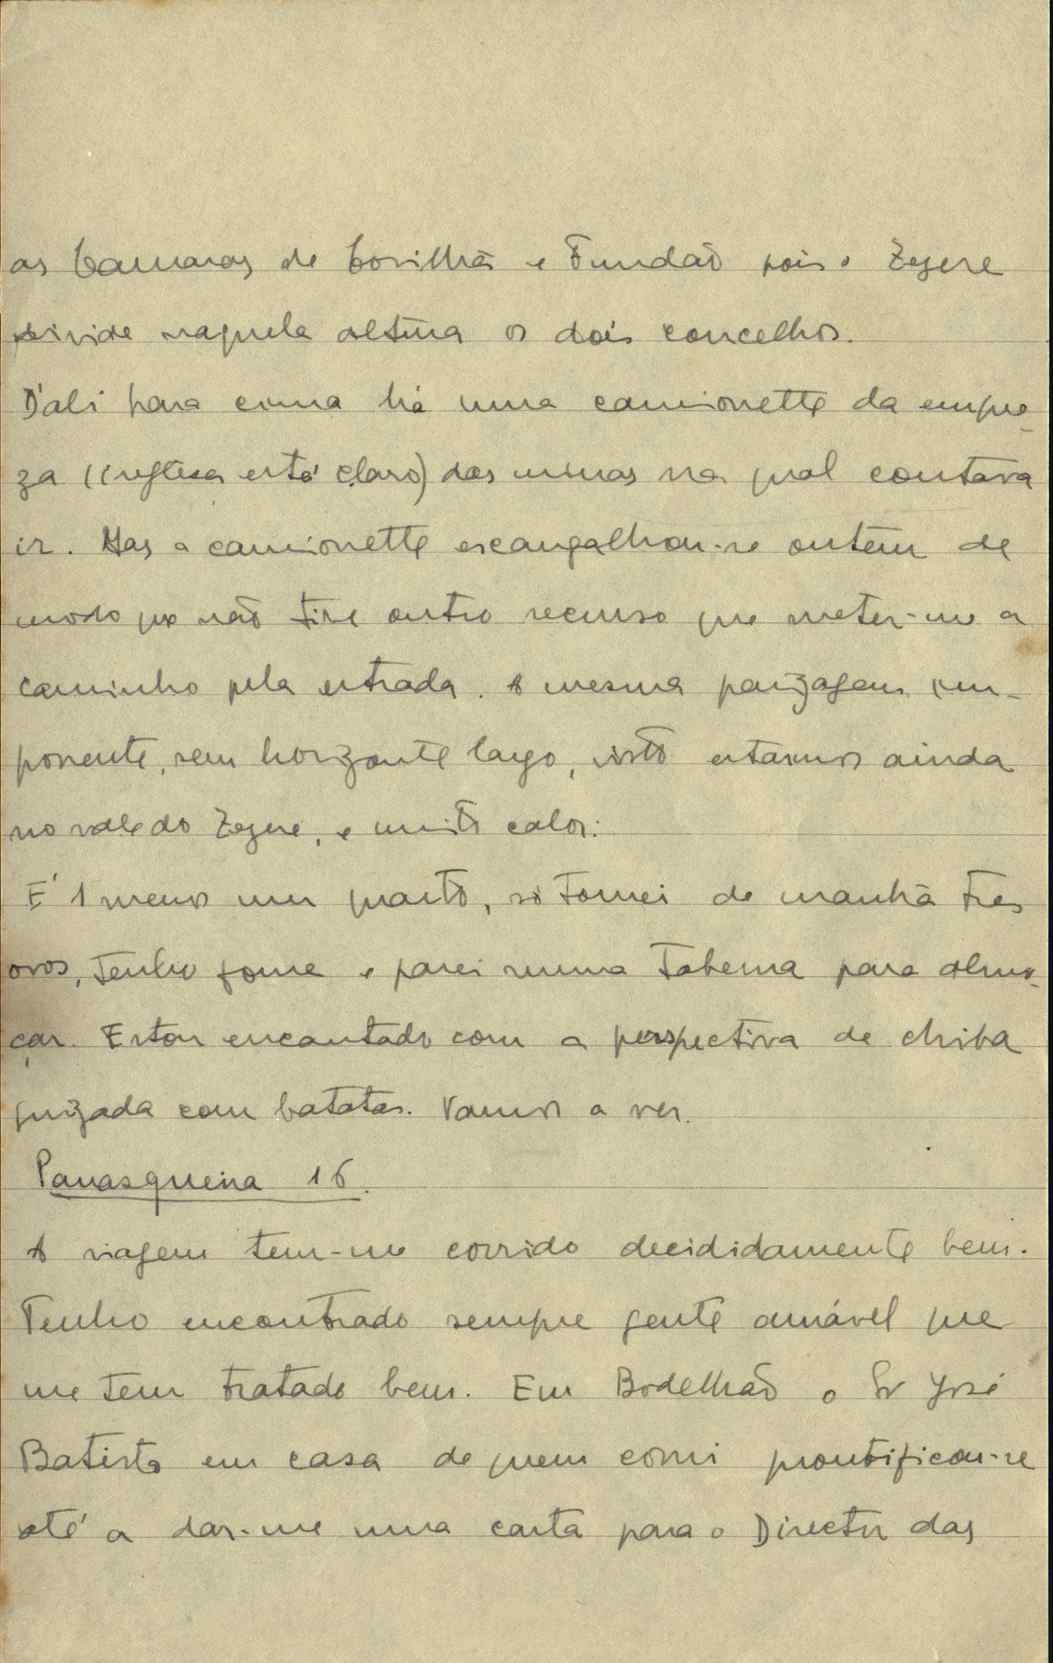 as Camaras de Covilhã e Fundão pois o Zezere
divide naquela altura os dois concelhos.
D'ali para cima há uma camionette da empre-
za (inglesa está claro) das minas na qual contava
ir. Mas a camionette escangalhou-se ontem de
modo que não tive outro recurso que meter-me a
caminho pela estrada. A mesma paizagem im-
ponente, sem horizonte largo, visto estarmos ainda
no vale do Zezere, e muito calor.
É 1 menos um quarto, só tomei de manhã tres
ovos, tenho fome e parei numa taberna para almo-
çar. Estou encantado com a perspectiva de chiba
guizada com batatas. Vamos a ver.
Panasqueira 16.
A viagem tem-me corrido decididamente bem.
Tenho encontrado sempre gente amável que
me tem tratado bem. Em Bodelhão o Sr José
Batista em casa de quem comi prontificou-se
até a dar-me uma carta para o Director das